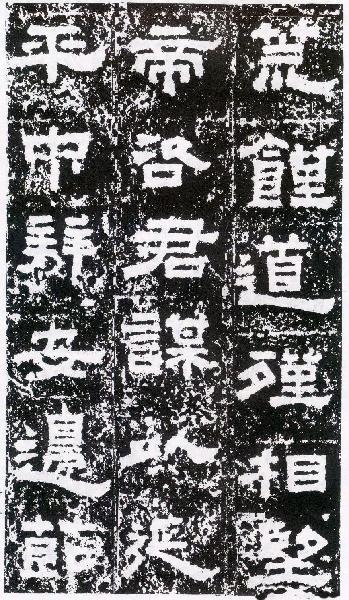 荒饉道殣相望
帝咨君謀以延
平中拜安邊節